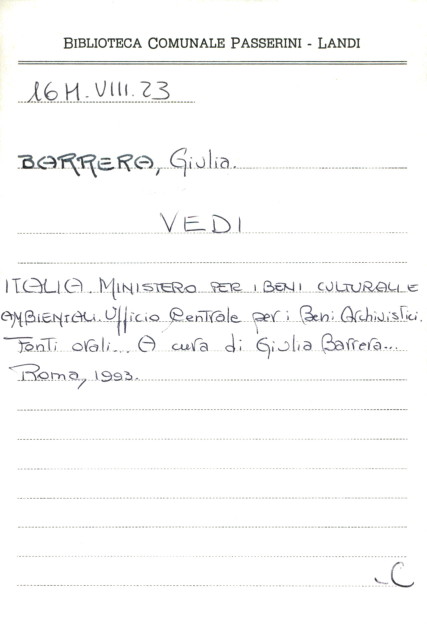 BIBLIOTECA COMUNALE PASSERINI - LANDI
16 M. VIII. 23
BARRERA, Giulia.
VEDI
ITALIA. MINISTERO PER I BENI CULTURALI E
AMBIENTALI. Ufficio Centrale per i Beni Archivistici.
Fonti orali... A cura di Giulia Barrera...
Roma, 1993.
-C